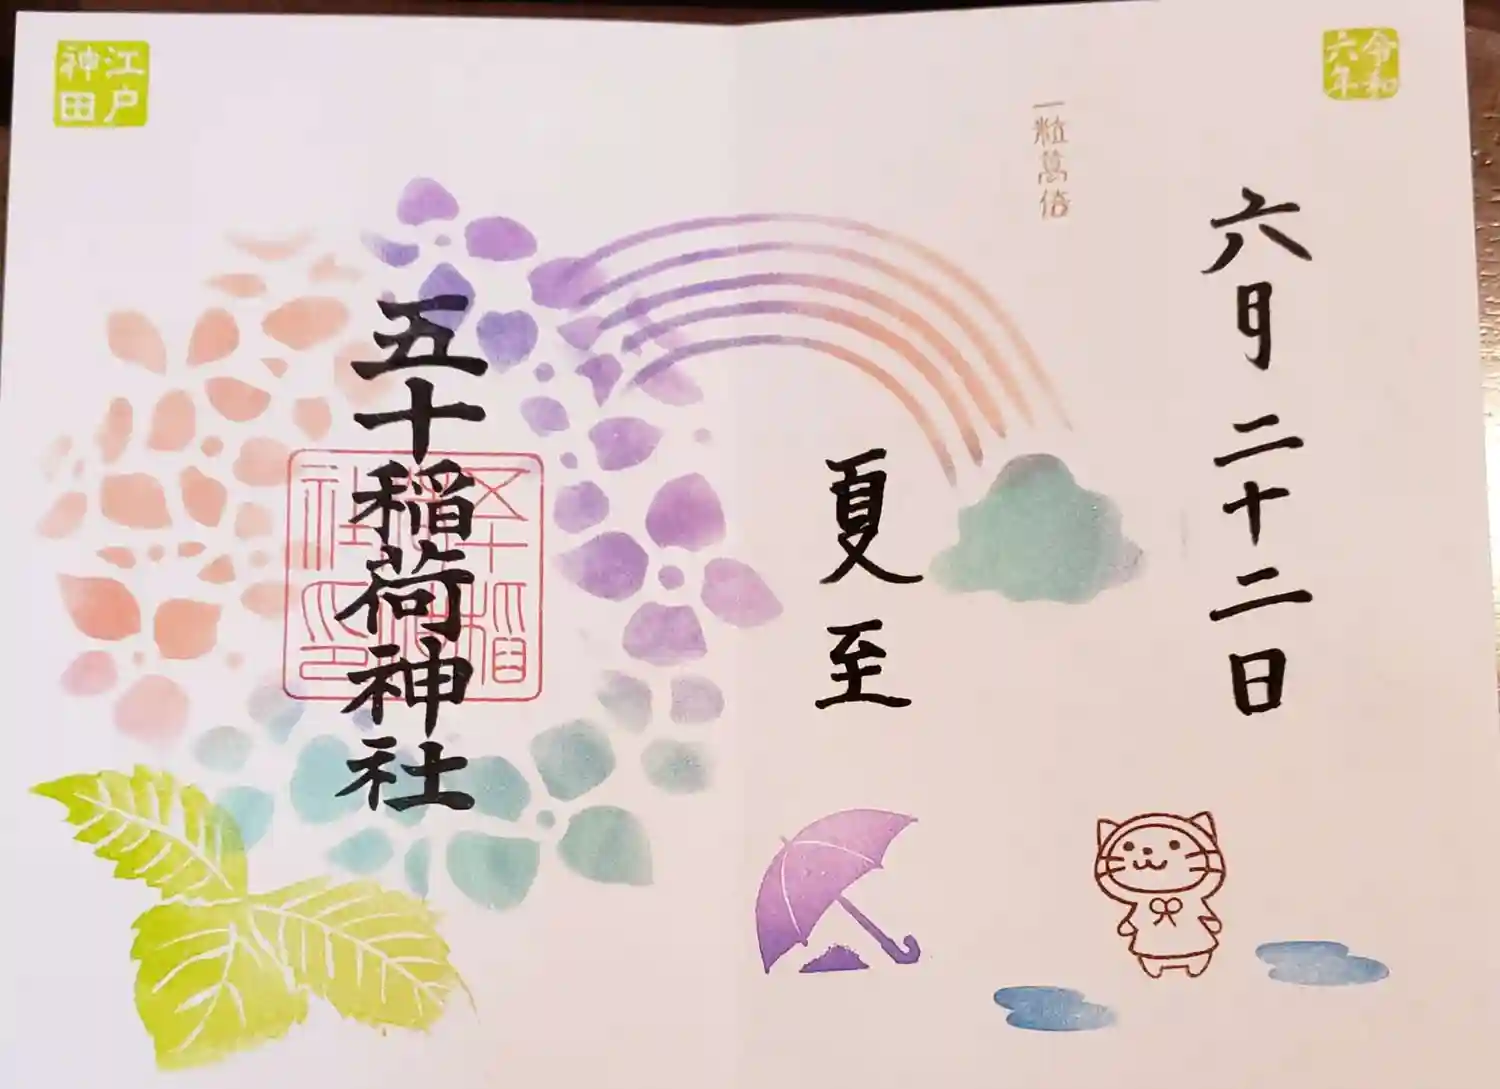 令和
六年
六月二十二日
一粒萬倍
夏至
五十稲荷神社
五十稲
荷神
社之印
江戸
神田